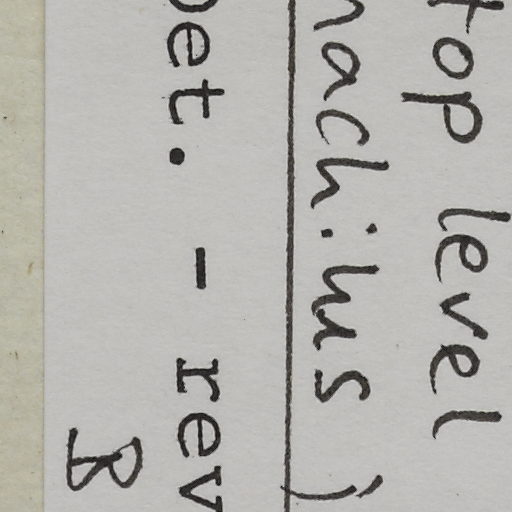 top level
machilus)
et. - rev